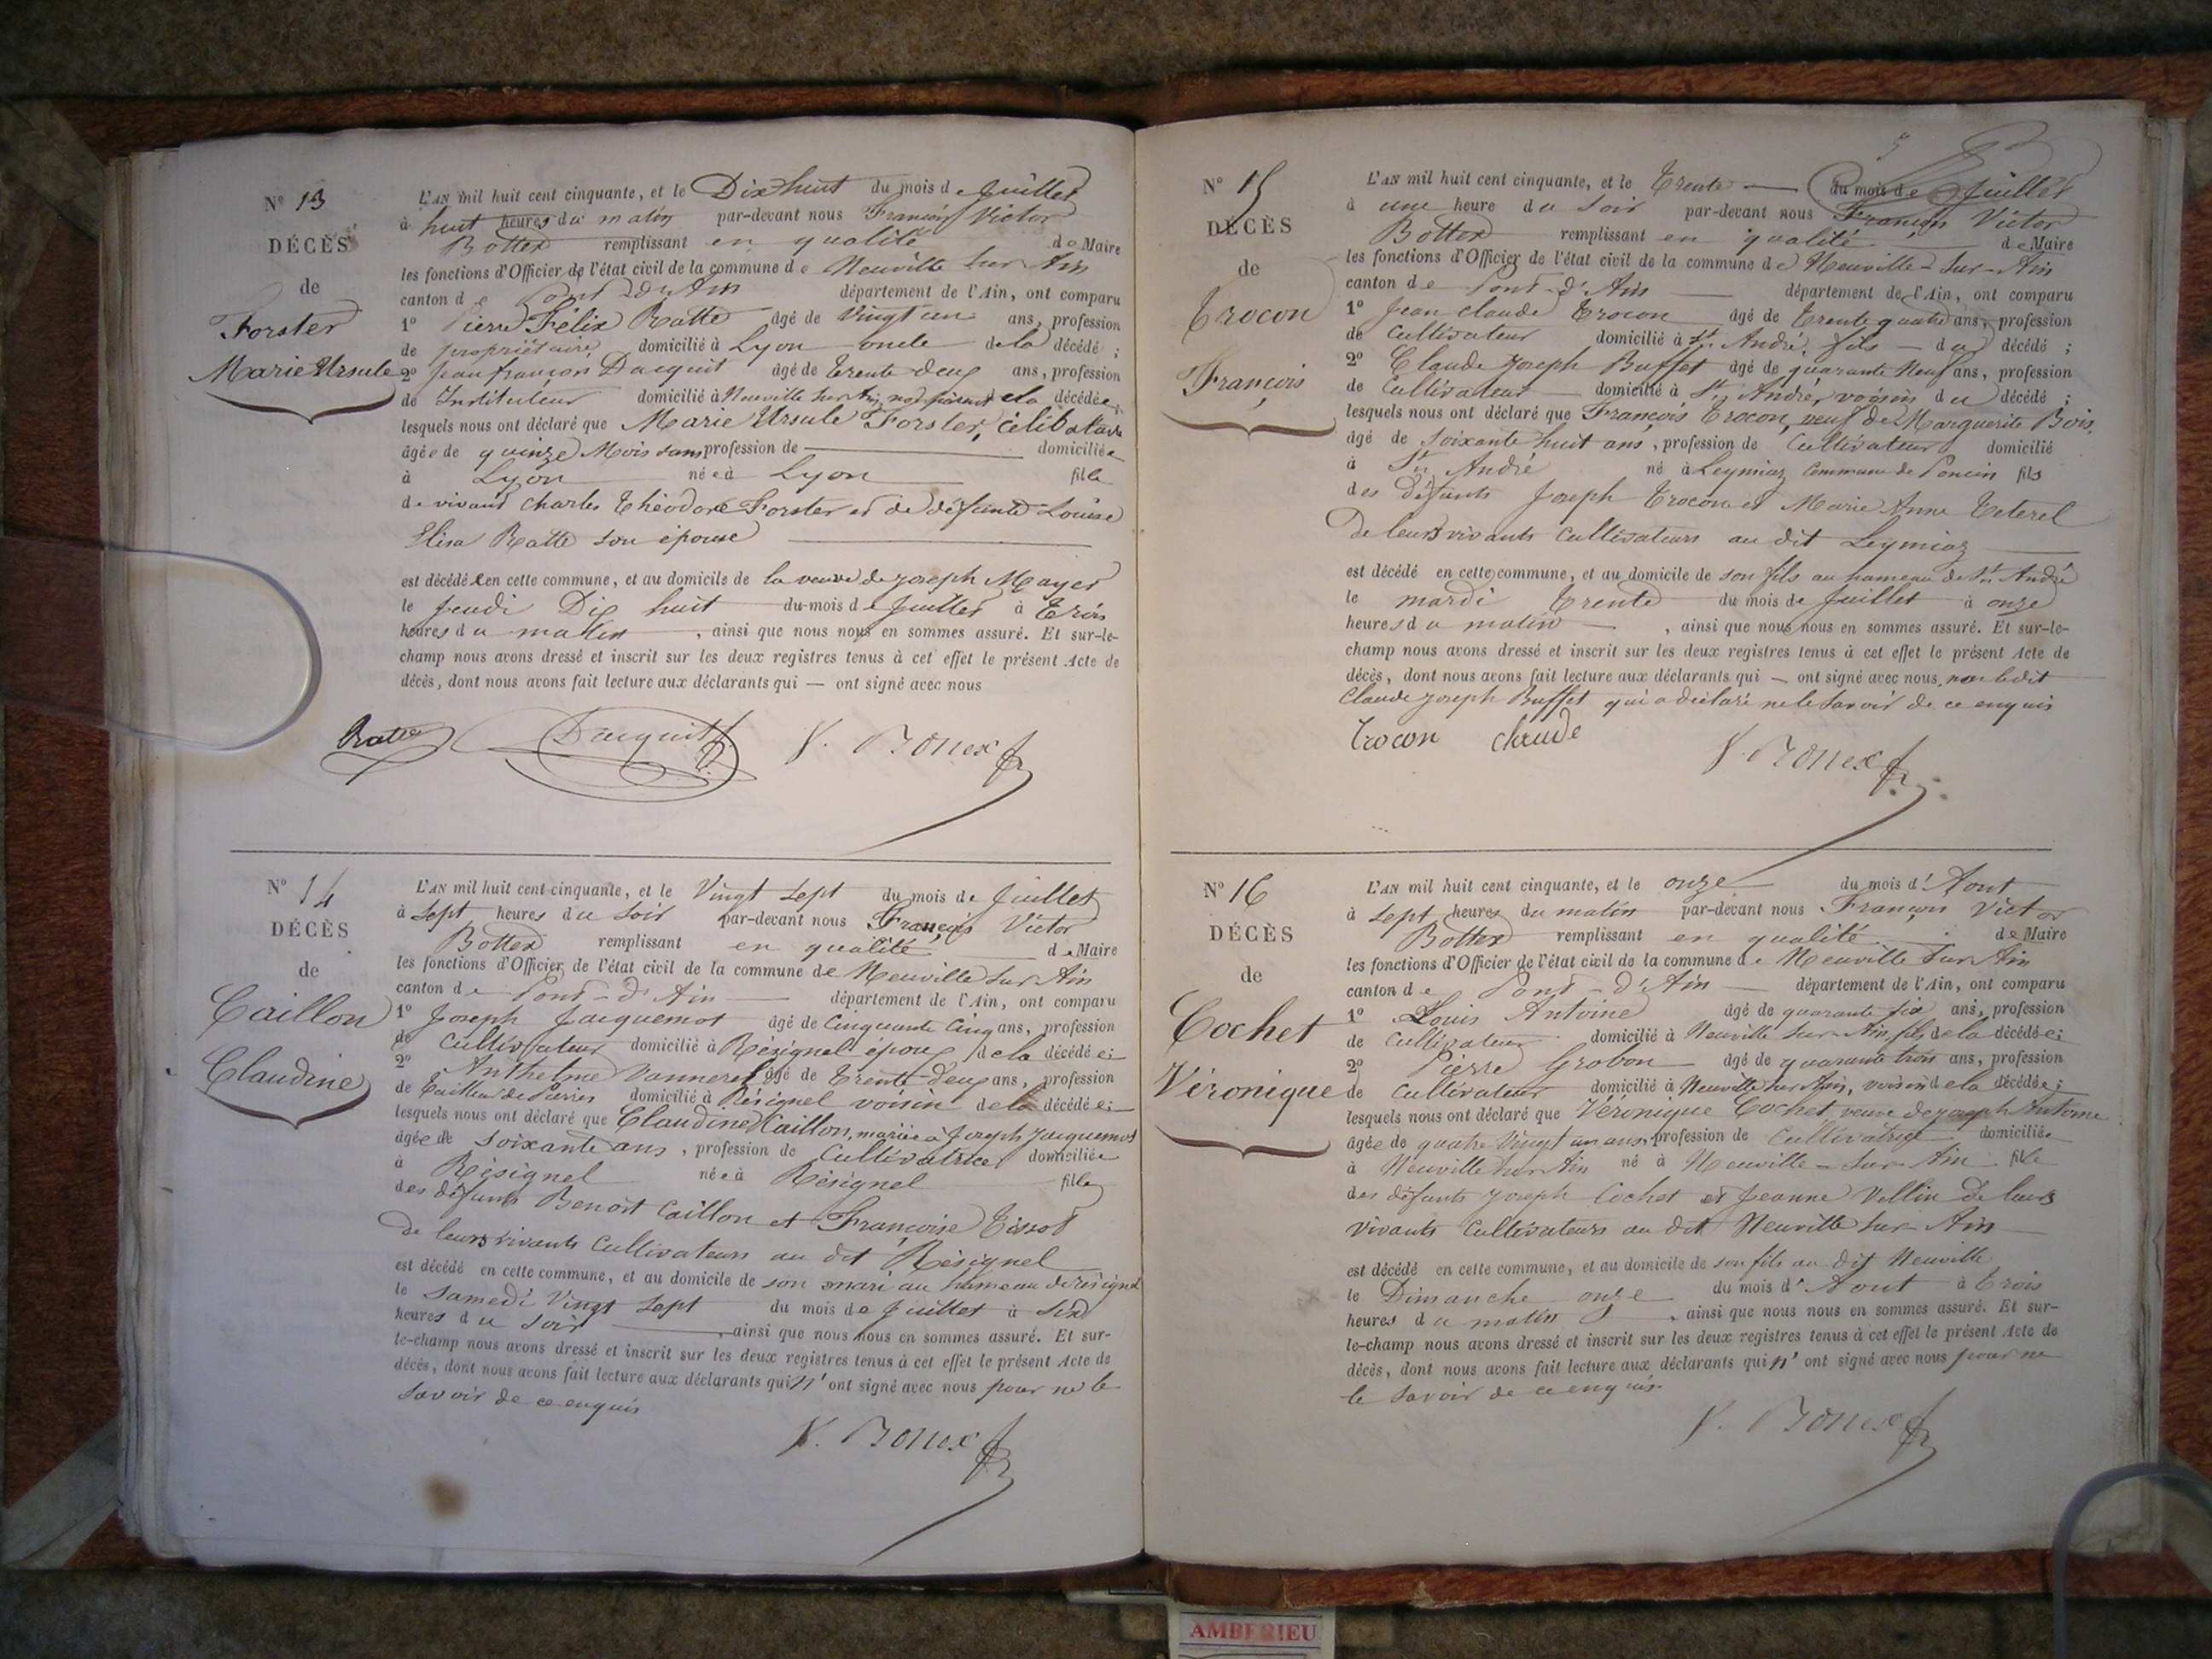 Nº 13
DÉCÈS
de
Forster
Marie Ursule
L'AN mil huit cent cinquante, et le Dix huit du mois de Juillet
à huit heures du matin par-devant nous François Victor
Bottex remplissant en qualité de Maire
les fonctions d'Officier de l'état civil de la commune de Neuville sur Ain
canton de Pont d'Ain département de l'Ain, ont comparu
1º Pierre Félix Ratte âgé de Vingt un ans, profession
de propriétaire domicilié à Lyon oncle de la décédé ;
2º Jean françois Dacquit âgé de trente deux ans, profession
de Instituteur domicilié à Neuville sur Ain, de la décédée,
lesquels nous ont déclaré que Marie Ursule Forster, célibataire
âgée de quinze Mois sans profession de domiciliée
à Lyon née à Lyon fille
de vivant Charles Théodore Forster et de défunte Louise
Elisa Ratte son épouse
est décédée en cette commune, et au domicile de la veuve de joseph Mayer
le Jeudi Dix huit du mois de Juillet à trois
heures du matin , ainsi que nous nous en sommes assuré. Et sur-le-
champ nous avons dressé et inscrit sur les deux registres tenus à cet effet le présent Acte de
décès, dont nous avons fait lecture aux déclarants qui — ont signé avec nous
Ratte Dacquit V. Bottex
Nº 14
DÉCÈS
de
Caillon
Claudine
L'AN mil huit cent cinquante, et le Vingt Sept du mois de Juillet
à Sept heures du soir par-devant nous François Victor
Bottex remplissant en qualité de Maire
les fonctions d'Officier de l'état civil de la commune de Neuville sur Ain
canton de Pont-d'Ain département de l'Ain, ont comparu
1º Joseph Jacquemot âgé de Cinquante Cinq ans, profession
de Cultivateur domicilié à Résignel époux de la décédée ;
2º Anthelme Vanneret âgé de trente deux ans, profession
de tailleur de Pierres domicilié à Résignel voisin de la décédée ;
lesquels nous ont déclaré que Claudine Caillon, mariée à Joseph Jacquemot
âgée de soixante ans, profession de Cultivatrice domiciliée
à Résignel née à Résignel fille
des défunts Benoit Caillon et Françoise Tissot
de leurs vivants Cultivateurs au dit Résignel
est décédé en cette commune, et au domicile de son mari au hameau de résignel
le samedi Vingt Sept du mois de Juillet à Six
heures du soir , ainsi que nous nous en sommes assuré. Et sur-
le-champ nous avons dressé et inscrit sur les deux registres tenus à cet effet le présent Acte de
décès, dont nous avons fait lecture aux déclarants qui n' ont signé avec nous pour ne le
savoir de ce enquis
V. Bottex
Nº 15
DÉCÈS
de
Trocon
François
L'AN mil huit cent cinquante, et le trente du mois de Juillet
à une heure du soir par-devant nous François Victor
Bottex remplissant en qualité de Maire
les fonctions d'Officier de l'état civil de la commune de Neuville-sur-Ain
canton de Pont-d'Ain département de l'Ain, ont comparu
1º Jean claude Trocon âgé de trente quatre ans, profession
de Cultivateur domicilié à St. André, fils du décédé ;
2º Claude joseph Buffet âgé de quarante Neuf ans, profession
de Cultivateur domicilié à St. André, voisin du décédé ;
lesquels nous ont déclaré que François Trocon, veuf de Marguerite Bois,
âgé de soixante huit ans, profession de Cultivateur domicilié
à St. André né à Leymiaz Commune de Poncin fils
des défunts Joseph Trocon et Marie Anne Teterel
De leurs vivants Cultivateurs au dit Leymiaz
est décédé en cette commune, et au domicile de son fils au hameau de St. André
le mardi trente du mois de Juillet à onze
heures du matin , ainsi que nous nous en sommes assuré. Et sur-le-
champ nous avons dressé et inscrit sur les deux registres tenus à cet effet le présent Acte de
décès, dont nous avons fait lecture aux déclarants qui — ont signé avec nous, non ledit
Claude joseph Buffet qui a déclaré ne le savoir de ce enquis
Trocon claude V. Bottex
Nº 16
DÉCÈS
de
Cochet
Véronique
L'AN mil huit cent cinquante, et le onze du mois d'Aout
à sept heures du matin par-devant nous François Victor
Bottex remplissant en qualité de Maire
les fonctions d'Officier de l'état civil de la commune de Neuville sur Ain
canton de Pont-d'Ain département de l'Ain, ont comparu
1º Louis Antoine âgé de quarante six ans, profession
de Cultivateur domicilié à Neuville sur Ain, fils de la décédée ;
2º Pierre Grobon âgé de quarante trois ans, profession
de Cultivateur domicilié à Neuville sur Ain, voisin de la décédée ;
lesquels nous ont déclaré que Véronique Cochet, veuve de joseph Antoine
âgée de quatre Vingt un ans, profession de Cultivatrice domiciliée
à Neuville sur Ain né à Neuville-sur-Ain fille
des défunts joseph Cochet et Jeanne Vellin de leurs
vivants Cultivateurs au dit Neuville sur Ain
est décédé en cette commune, et au domicile de son fils au dit Neuville
le Dimanche onze du mois d'Aout à trois
heures du matin , ainsi que nous nous en sommes assuré. Et sur-
le-champ nous avons dressé et inscrit sur les deux registres tenus à cet effet le présent Acte de
décès, dont nous avons fait lecture aux déclarants qui n' ont signé avec nous pour ne
le savoir de ce enquis
V. Bottex
AMBERIEU